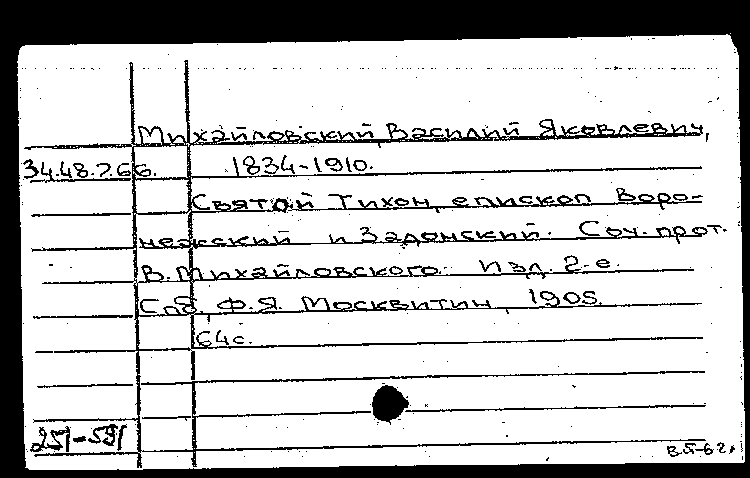 Михайловский, Василий Яковлевич,
34.48.7.66. 1834-1910.
Святой Тихон, епископ Воро-
нежский и Задонский. Соч. прот.
В. Михайловского. Изд. 2-е.
Спб, Ф.Я. Москвитин, 1905.
64с.
251-591